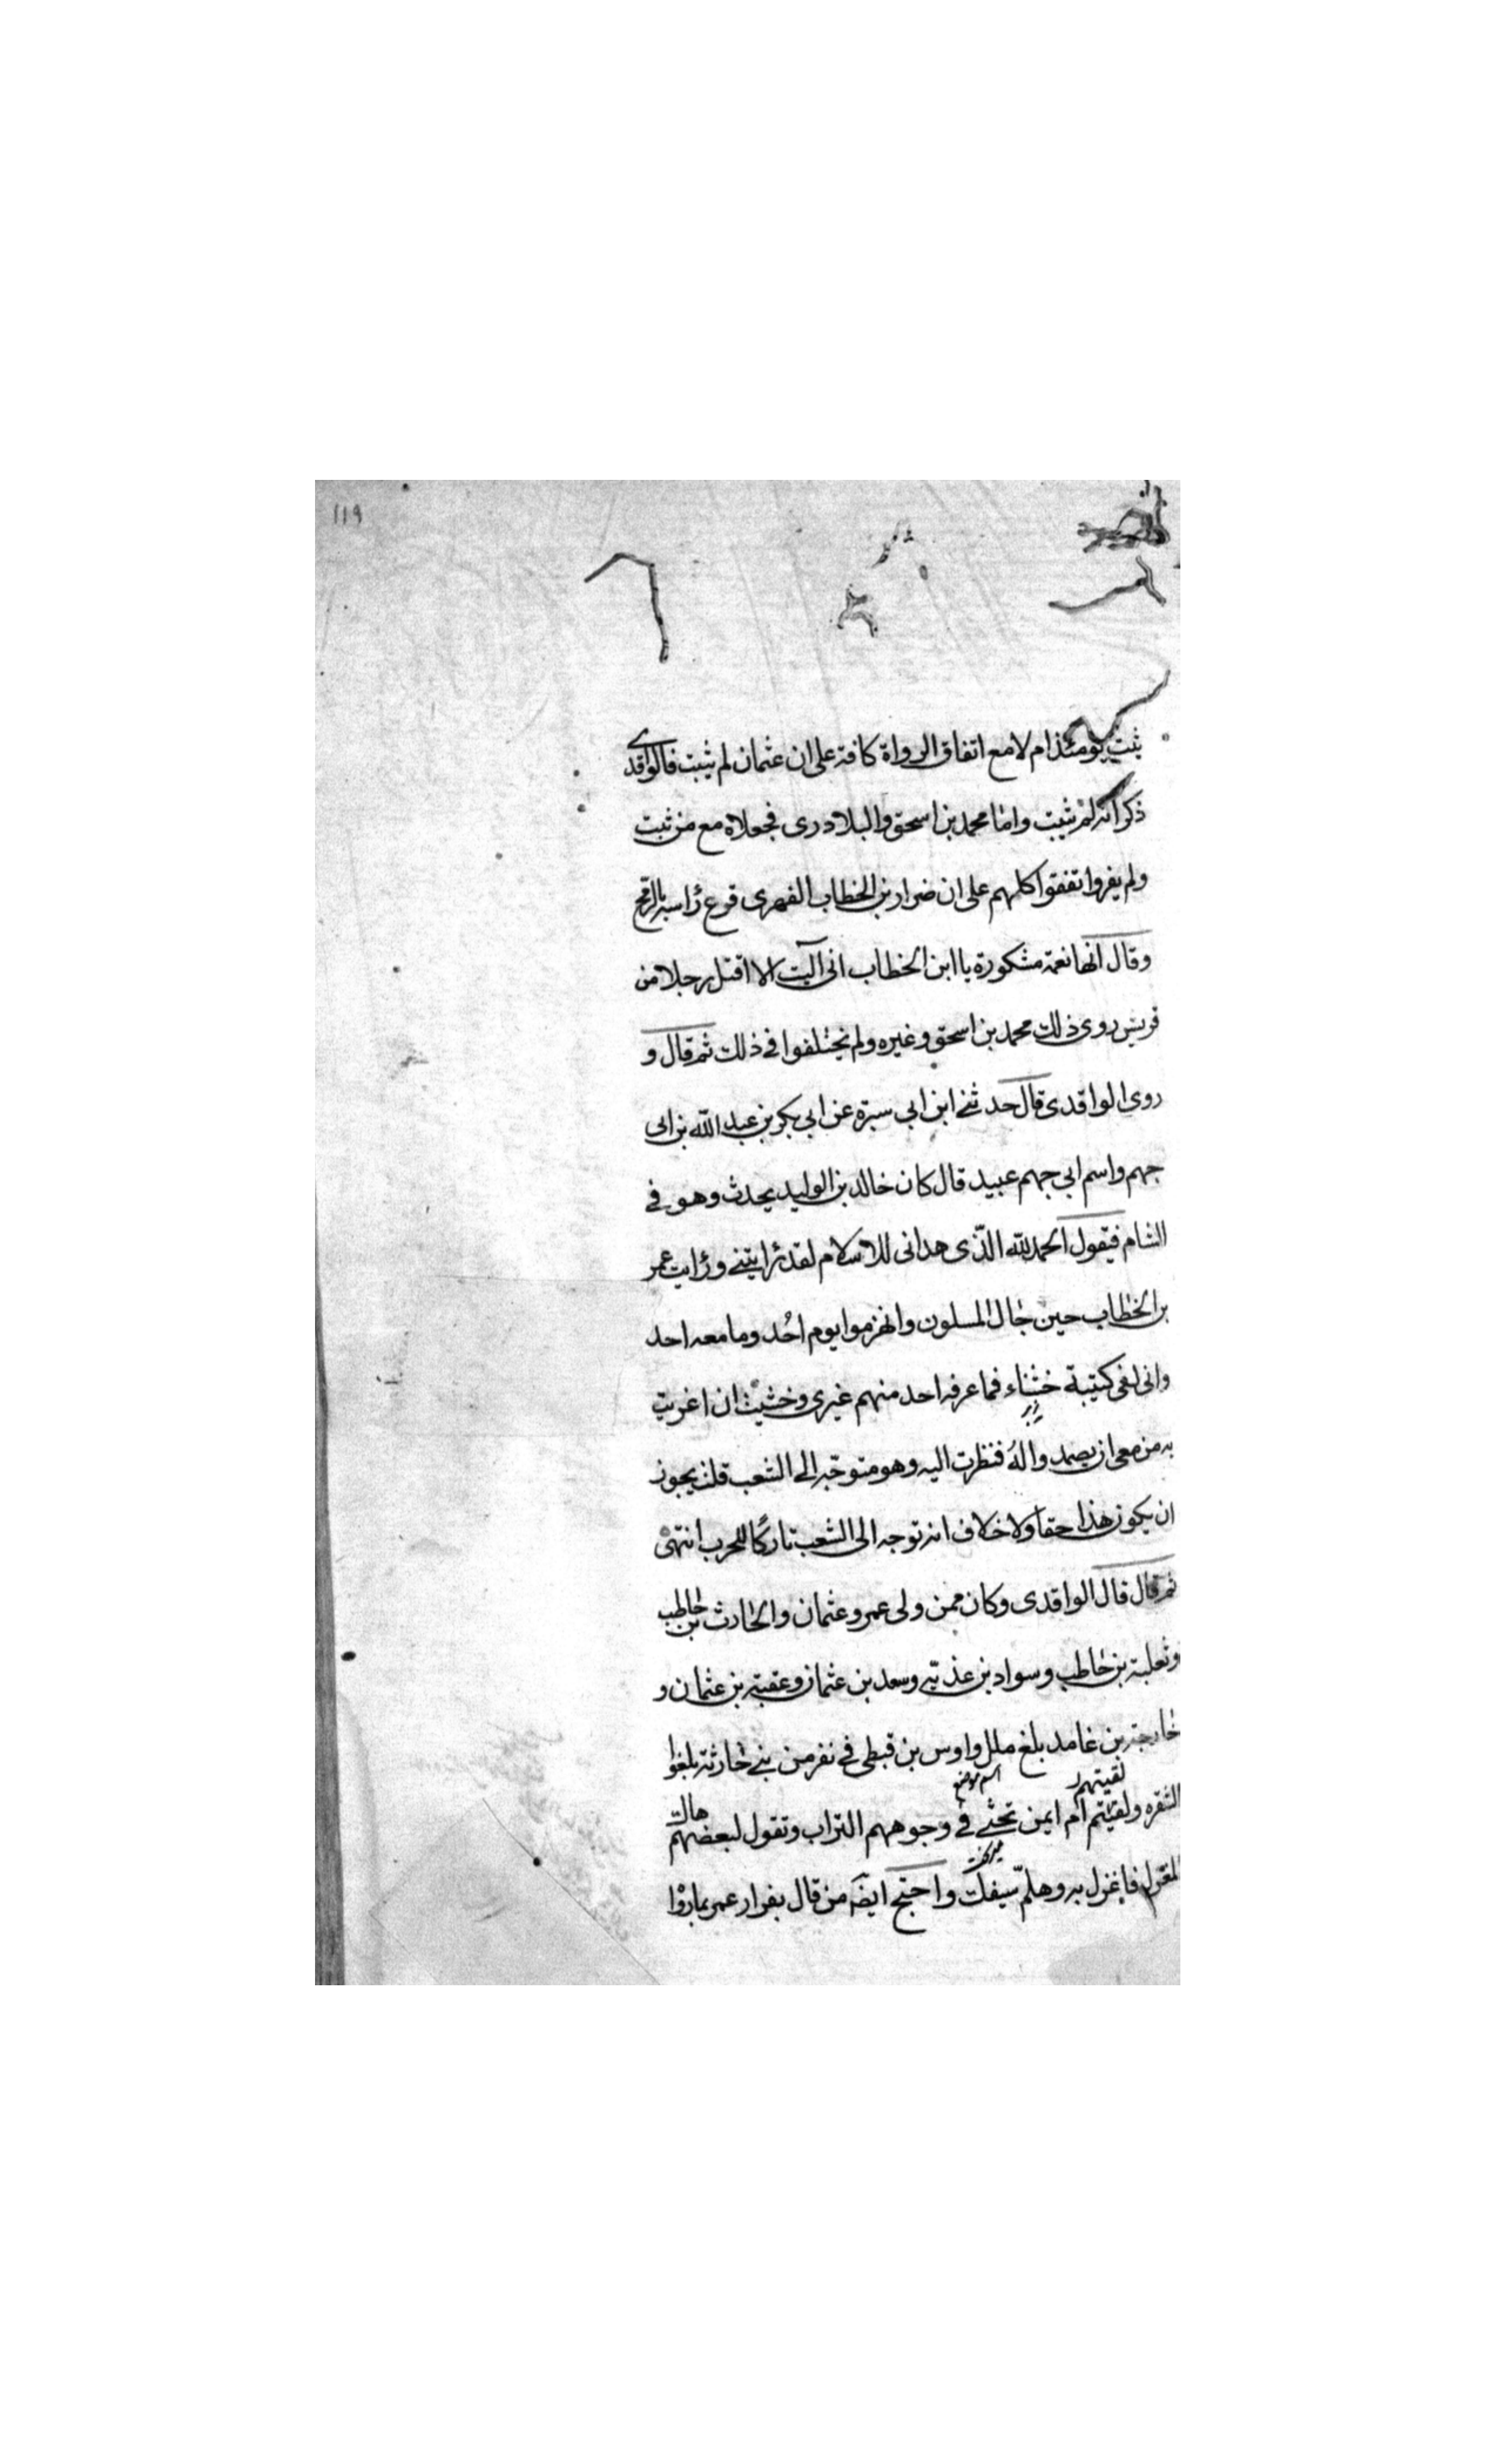 ١١٩
ثبت يومئذ ام لا مع اتفاق الرواة كافة على ان عثمان لم يثبت فالواقدى
ذكر انه لم يثبت واما محمد بن اسحق والبلادرى فجعلاه مع من ثبت
ولم يفر واتفقوا كلهم على ان ضرار بن الخطاب الفهرى قرع راسه بالرمح
وقال انها نعمة مشكورة يا ابن الخطاب انى آليت الا اقتل رجلا من
قريش روى ذلك محمد بن اسحق وغيره ولم يختلفوا فى ذلك ثم قال و
روى الواقدى قال حدثنى ابن ابى سبرة عن ابى بكر بن عبد الله بن ابى
جهم واسم ابى جهم عبيد قال كان خالد بن الوليد يحدث وهو فى
الشام فيقول الحمد لله الذى هدانى للاسلام لقد رايتنى ورايت عمر
بن الخطاب حين جال المسلمون وانهزموا يوم احُد وما معه احد
وانى لفى كتيبة خشناء فما عرفه احد منهم غيرى وخشيت ان اغريت
به من معى ان يصمدوا له فنظرت اليه وهو متوجه الى الشعب قلت يجوز
ان يكون هذا حقا ولا خلاف انه توجه الى الشعب تاركًا للحرب انتهى
ثم قال قال الواقدى وكان ممن ولى عمر وعثمان والحارث بن حاطب
وثعلبة بن حاطب وسواد بن غذية وسعد بن عثمان وعقبة بن عثمان و
خارجة بن عامد بلغ ملل واوس بن قبطى فى نفر من بنى حارثة بلغوا
لقيتهم اسم موضع
الشقره ولقيتم ام ايمن تحثى فى وجوههم التراب وتقول لبعضهم هاك
المغزل فاغزل به وهلم سيفك واحتج ايضه من قال بفرار عمر بما روا